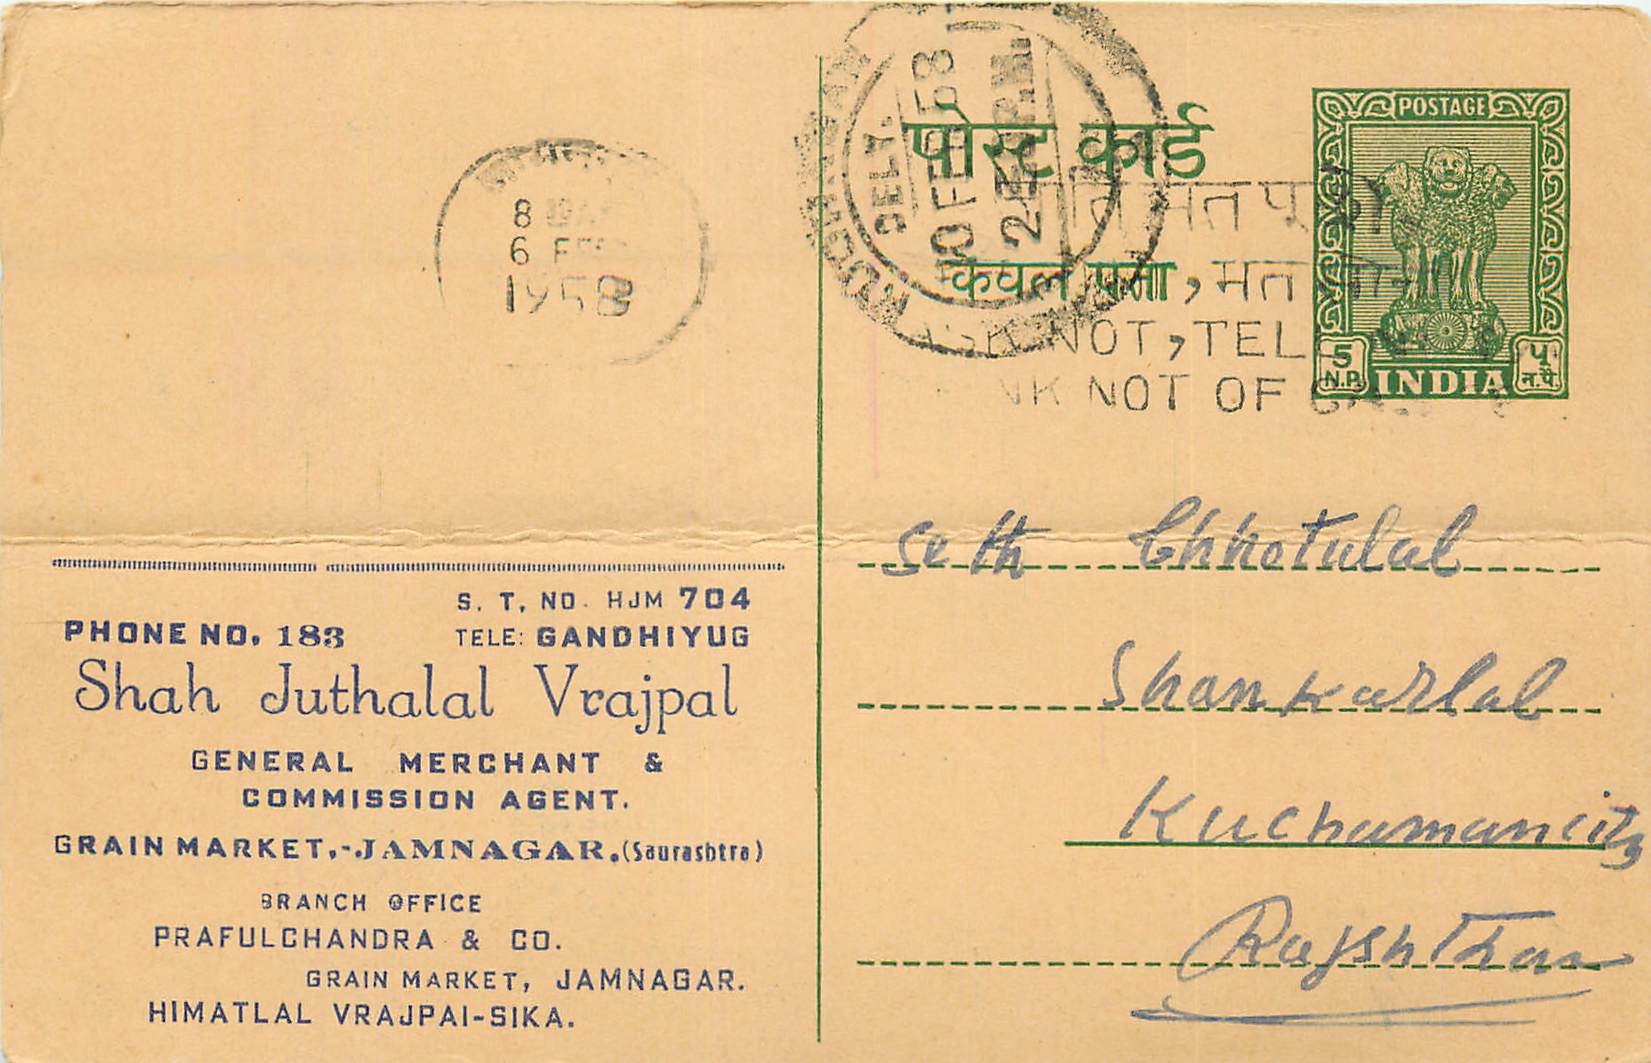 8
6 FEB
1958
DELY.
10 FEB 58
पोस्ट कार्ड
केवल पता
मत पू
, मत
NOT, TELL
NOT OF
POSTAGE
5
N.P.
INDIA
प
न.पै.
S. T. NO. HJM 704
PHONE NO. 183 TELE: GANDHIYUG
Shah Juthalal Vrajpal
GENERAL MERCHANT &
COMMISSION AGENT.
GRAIN MARKET,-JAMNAGAR.(Saurashtra)
BRANCH OFFICE
PRAFULCHANDRA & CO.
GRAIN MARKET, JAMNAGAR.
HIMATLAL VRAJPAI-SIKA.
Seth Chhotulal
Shankarlal
Kuchamancity
Rajshthan